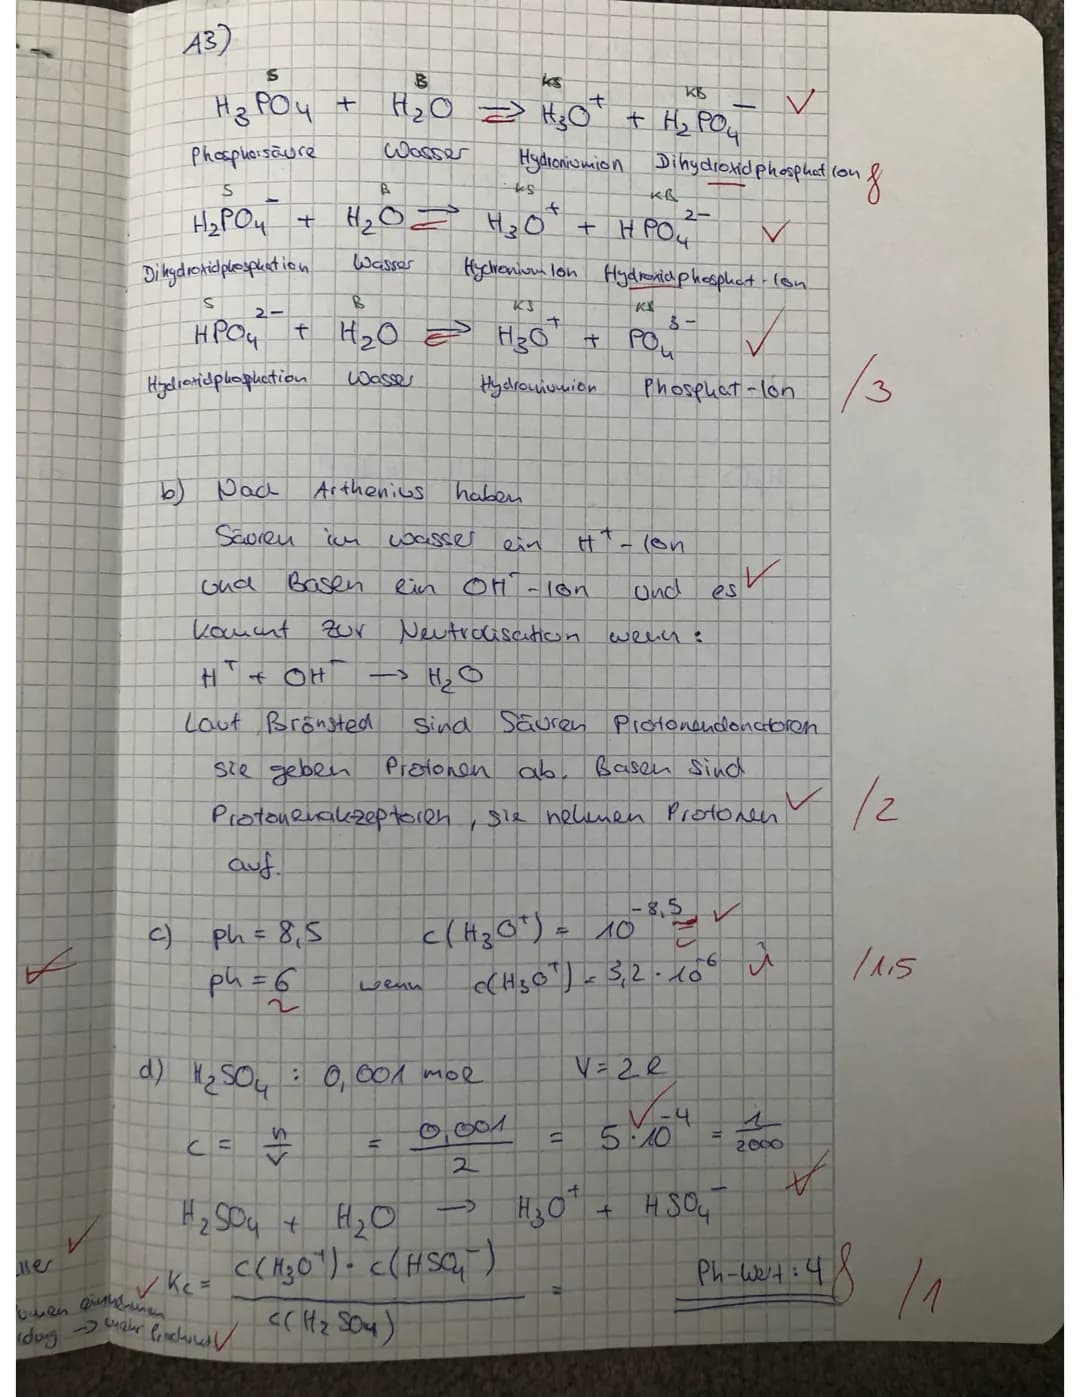 A3)
S B KS KB
H₃PO₄ + H₂O ⇌ H₃O⁺ + H₂PO₄⁻ ✓
Phosphorsäure Wasser Hydroniumion Dihydroxidphosphat Ion f
S B KS KB
H₂PO₄⁻ + H₂O ⇌ H₃O⁺ + HPO₄²⁻ ✓
Dihydroxidphosphation Wasser Hydronium Ion Hydroxidphosphat-Ion
S B KS KB
HPO₄²⁻ + H₂O ⇌ H₃O⁺ + PO₄³⁻ ✓
Hydroxidphosphation Wasser Hydroniumion Phosphat-Ion /3
b) Nach Arthenius haben
Säuren im wasser ein H⁺-Ion
und Basen ein OH⁻-Ion und es ✓
kommt zur Neutralisation wenn:
H⁺ + OH⁻ → H₂O
Laut Brönsted sind Säuren Protonendonatoren
sie geben Protonen ab. Basen sind
Protonenakzeptoren, sie nehmen Protonen ✓ /2
auf.
c) ph = 8,5 c(H₃O⁺) = 10⁻⁸·⁵ ✓
ph = 6 wenn c(H₃O⁺) = 3,2 · 10⁻⁶ /1,5
d) H₂SO₄ : 0,001 mol V = 2 l
c = n/V = 0,001/2 = 5·10⁻⁴ = 1/2000 ✓
H₂SO₄ + H₂O → H₃O⁺ + HSO₄⁻
✓ Kc = c(H₃O⁺) · c(HSO₄⁻) / c(H₂SO₄) = Ph-Wert : 4 f /1